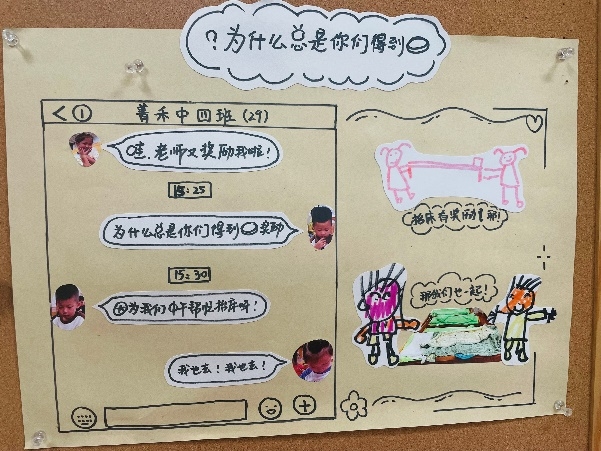 ?为什么总是你们得到
< ① 菁禾中四班(29)
哇.老师又奖励我啦!
15:25
为什么总是你们得到奖励
15:30
因为我们中午帮忙抬床呀!
我也去!我也去!
抬床有奖励拿耶!
那我们也一起!